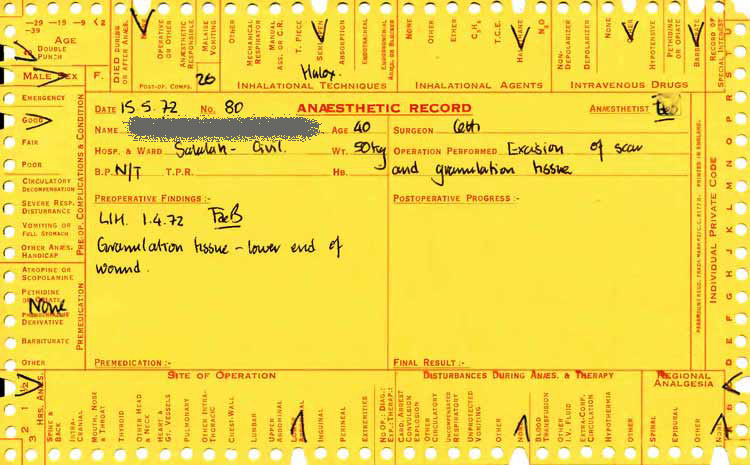 -29 -19 -9 <2
-39
AGE
DOUBLE PUNCH
MALE SEX
F.
DIED DURING OR AFTER ANÆS.
NONE
OPERATIVE OR OTHER
ANÆSTHETIC RESPONSIBLE
MALAISE VOMITING
OTHER
POST-OP. COMPS.
26
MECHANICAL RESPIRATOR
MANUAL ASS. OR C.R.
T. PIECE
SEMI-OPEN
ABSORPTION
ENDOTRACHEAL
Halox.
INHALATIONAL TECHNIQUES
NONE
OTHER
ETHER
C₃H₆
T.C.E.
HALOTHANE
N₂O
INHALATIONAL AGENTS
NON-DEPOLARIZER
DEPOLARIZER
NONE
OTHER
HYPOTENSIVE
PETHIDINE OR OPIATE
BARBITURATE
INTRAVENOUS DRUGS
RECORD OF SPECIAL INTEREST
EMERGENCY
GOOD
FAIR
POOR
CIRCULATORY DECOMPENSATION
SEVERE RESP. DISTURBANCE
VOMITING OR FULL STOMACH
OTHER ANÆS. HANDICAP
PRE-OP. COMPLICATIONS & CONDITION
ATROPINE OR SCOPOLAMINE
PETHIDINE OR OPIATE
None
PHENOTHIAZINE DERIVATIVE
BARBITURATE
OTHER
PREMEDICATION
DATE 15.5.72 NO. 80 ANÆSTHETIC RECORD ANÆSTHETIST
NAME AGE 40 SURGEON
HOSP. & WARD Salalah - Civil. WT. 50kg OPERATION PERFORMED Excision of scar
B.P. N/T T.P.R. HB. and granulation tissue
PREOPERATIVE FINDINGS :- POSTOPERATIVE PROGRESS :-
LIH. 1.4.72
Granulation tissue - lower end of
wound.
PREMEDICATION :- FINAL RESULT :-
INDIVIDUAL PRIVATE CODE
PRINTED IN ENGLAND.
3 2 1 ½ <½
HRS. ANÆS.
SITE OF OPERATION
SPINE & BACK
INTRA-CRANIAL
MOUTH, NOSE & THROAT
THYROID
OTHER HEAD & NECK
HEART & GT. VESSELS
PULMONARY
OTHER INTRA-THORACIC
CHEST-WALL
LUMBAR
UPPER ABDOMINAL
INGUINAL
PERINEAL
EXTREMITIES
DISTURBANCES DURING ANÆS. & THERAPY
CARD. ARREST
CONVULSION EXPLOSION
OTHER CIRCULATORY
UNCOMPENSATED RESPIRATORY
UNPROTECTED VOMITING
OTHER
NONE
BLOOD TRANSFUSION
OTHER I.V. FLUID
EXTRA-CORP. CIRCULATION
HYPOTHERMIA
OTHER
REGIONAL ANALGESIA
SPIRAL
EPIDURAL
OTHER
NONE